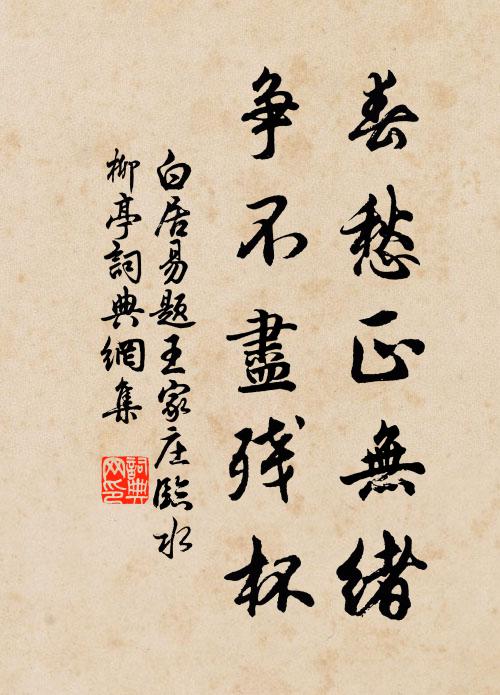 春愁正無緒
争不盡残杯
白居易題王家庄臨水
柳亭詞典網集
詞典
网印